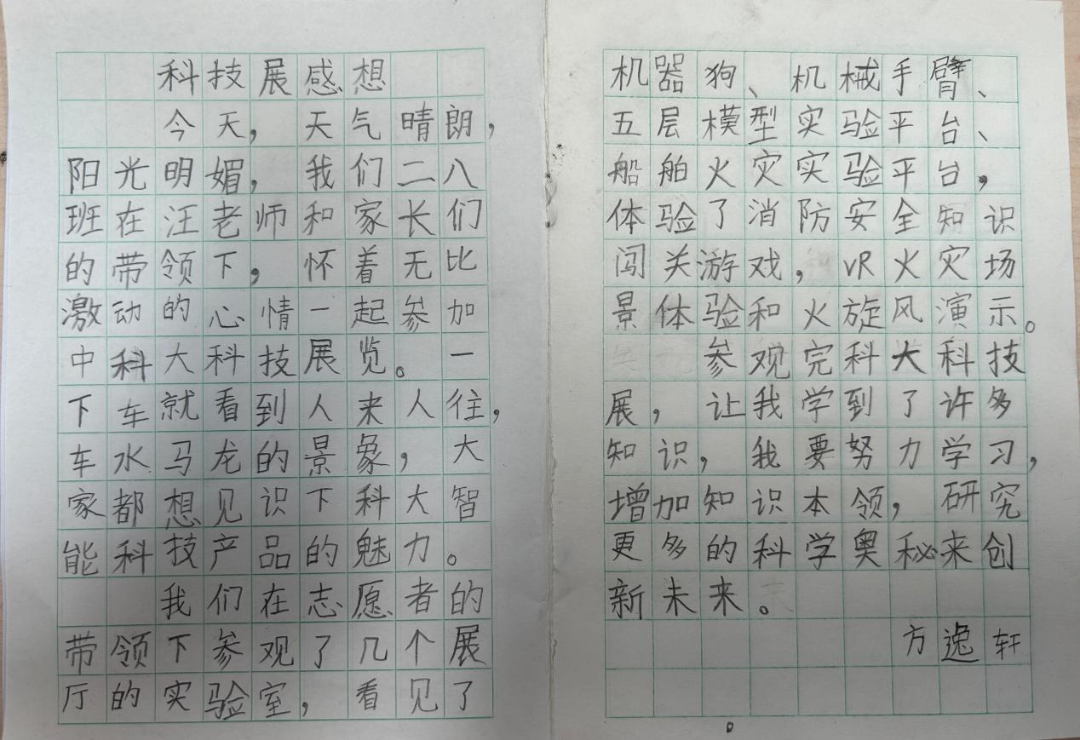 科技展感想
今天，天气晴朗，
阳光明媚，我们二八
班在汪老师和家长们
的带领下，怀着无比
激动的心情一起参加
中科大科技展览。一
下车就看到人来人往，
车水马龙的景象，大
家都想见识下科大智
能科技产品的魅力。
我们在志愿者的
带领下参观了几个展
厅的实验室，看见了
机器狗、机械手臂、
五层模型实验平台、
船舶火灾实验平台，
体验了消防安全知识
闯关游戏，VR火灾场
景体验和火旋风演示。
参观完科大科技
展，让我学到了许多
知识，我要努力学习，
增加知识本领，研究
更多的科学奥秘来创
新未来。
方逸轩